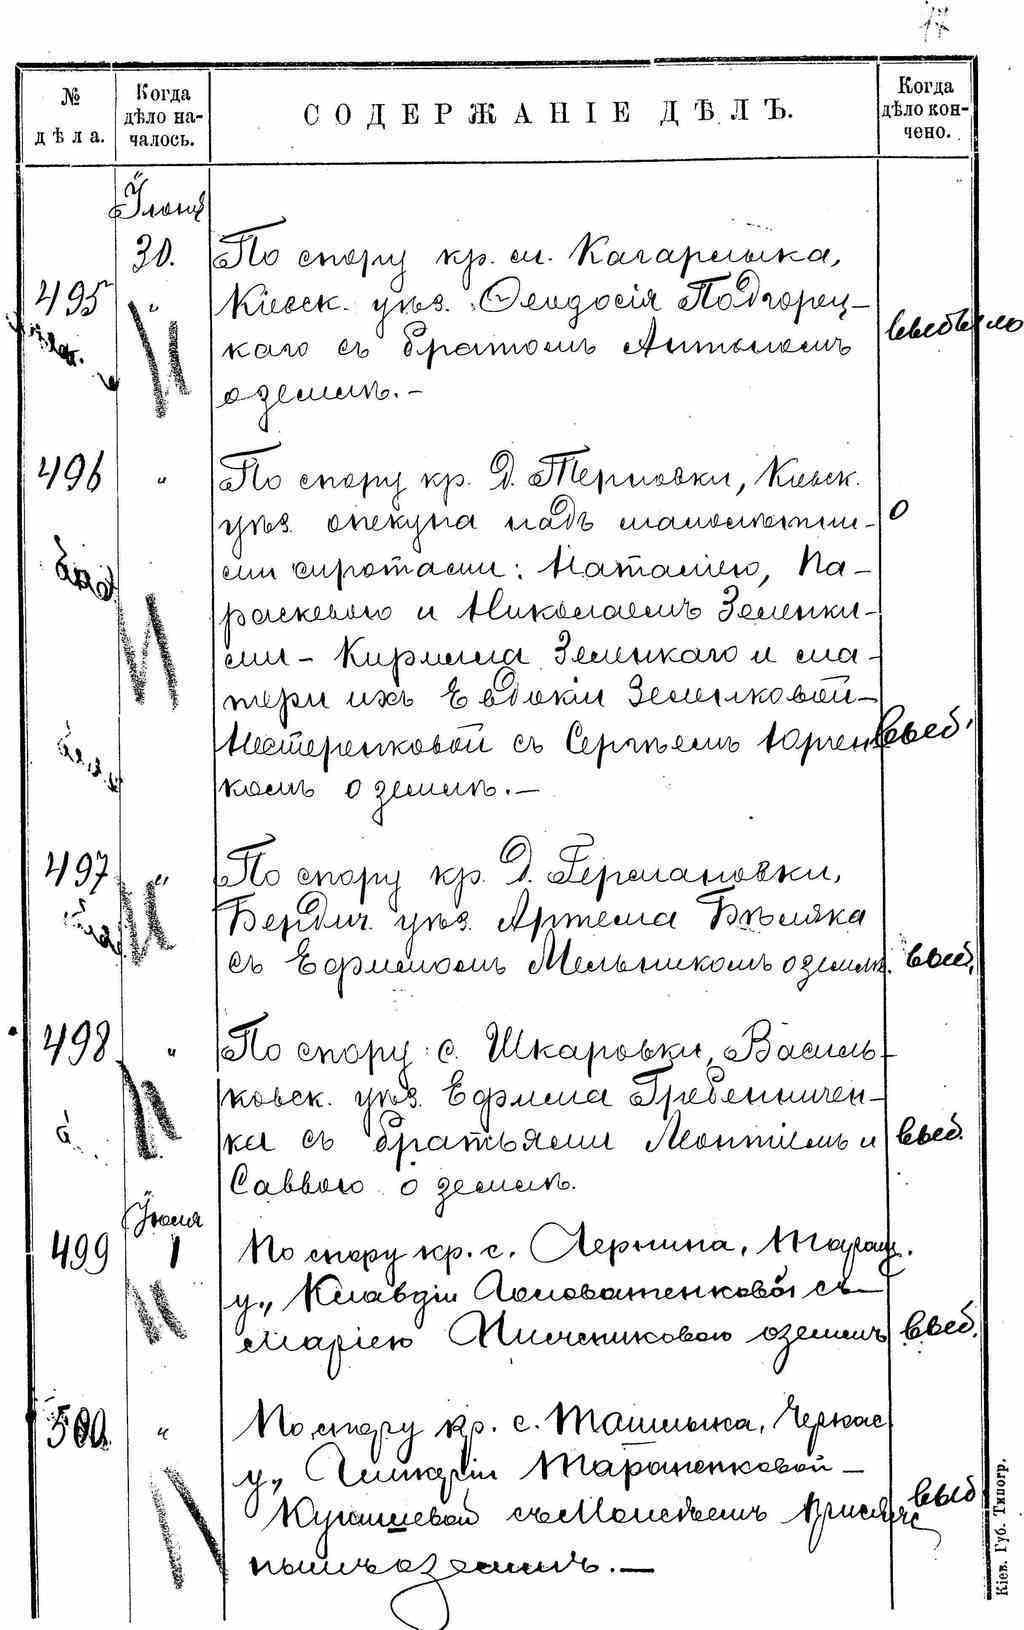 17
№ дѣла.
Когда дѣло началось.
СОДЕРЖАНІЕ ДѢЛЪ.
Когда дѣло кончено.
Іюня
30.
495
"
По спору кр. м. Кагарлыка,
Кіевск. уѣз. Ѳеодосія Подгорец-
каго съ братомъ Антономъ
о землѣ.-
выбыло
496
"
По спору кр. д. Терновки, Кіевск.
уѣз. опекуна надъ малолѣтни-
ми сиротами: Наталіею, Па-
раскевою и Николаемъ Зеленки-
ми - Кирилла Зеленкаго и ма-
тери ихъ Евдокіи Зеленковой-
Нестеренковой съ Сергѣемъ Юрчен
комъ о землѣ.-
о
выб.
497
"
По спору кр. д. Германовки,
Бердич. уѣз. Артема Бѣляка
съ Ефимомъ Мельникомъ о землѣ.
выб.
498
"
По спору с. Шкаровки, Василь-
ковск. уѣз. Ефима Гребенничен-
ка съ братьями Леонтіемъ и
Саввою о землѣ.
выб.
Іюля
499
1
По спору кр. с. Лернина, Таращ.
у., Клавдіи Головатенковой съ
Маріею о землѣ
выб.
500
"
По спору кр. с. Ташлыка, Черкас
у., Тараненковой-
съ Моисѣемъ Присяж
нымъ о землѣ.-
выб
Кіев. Губ. Типогр.